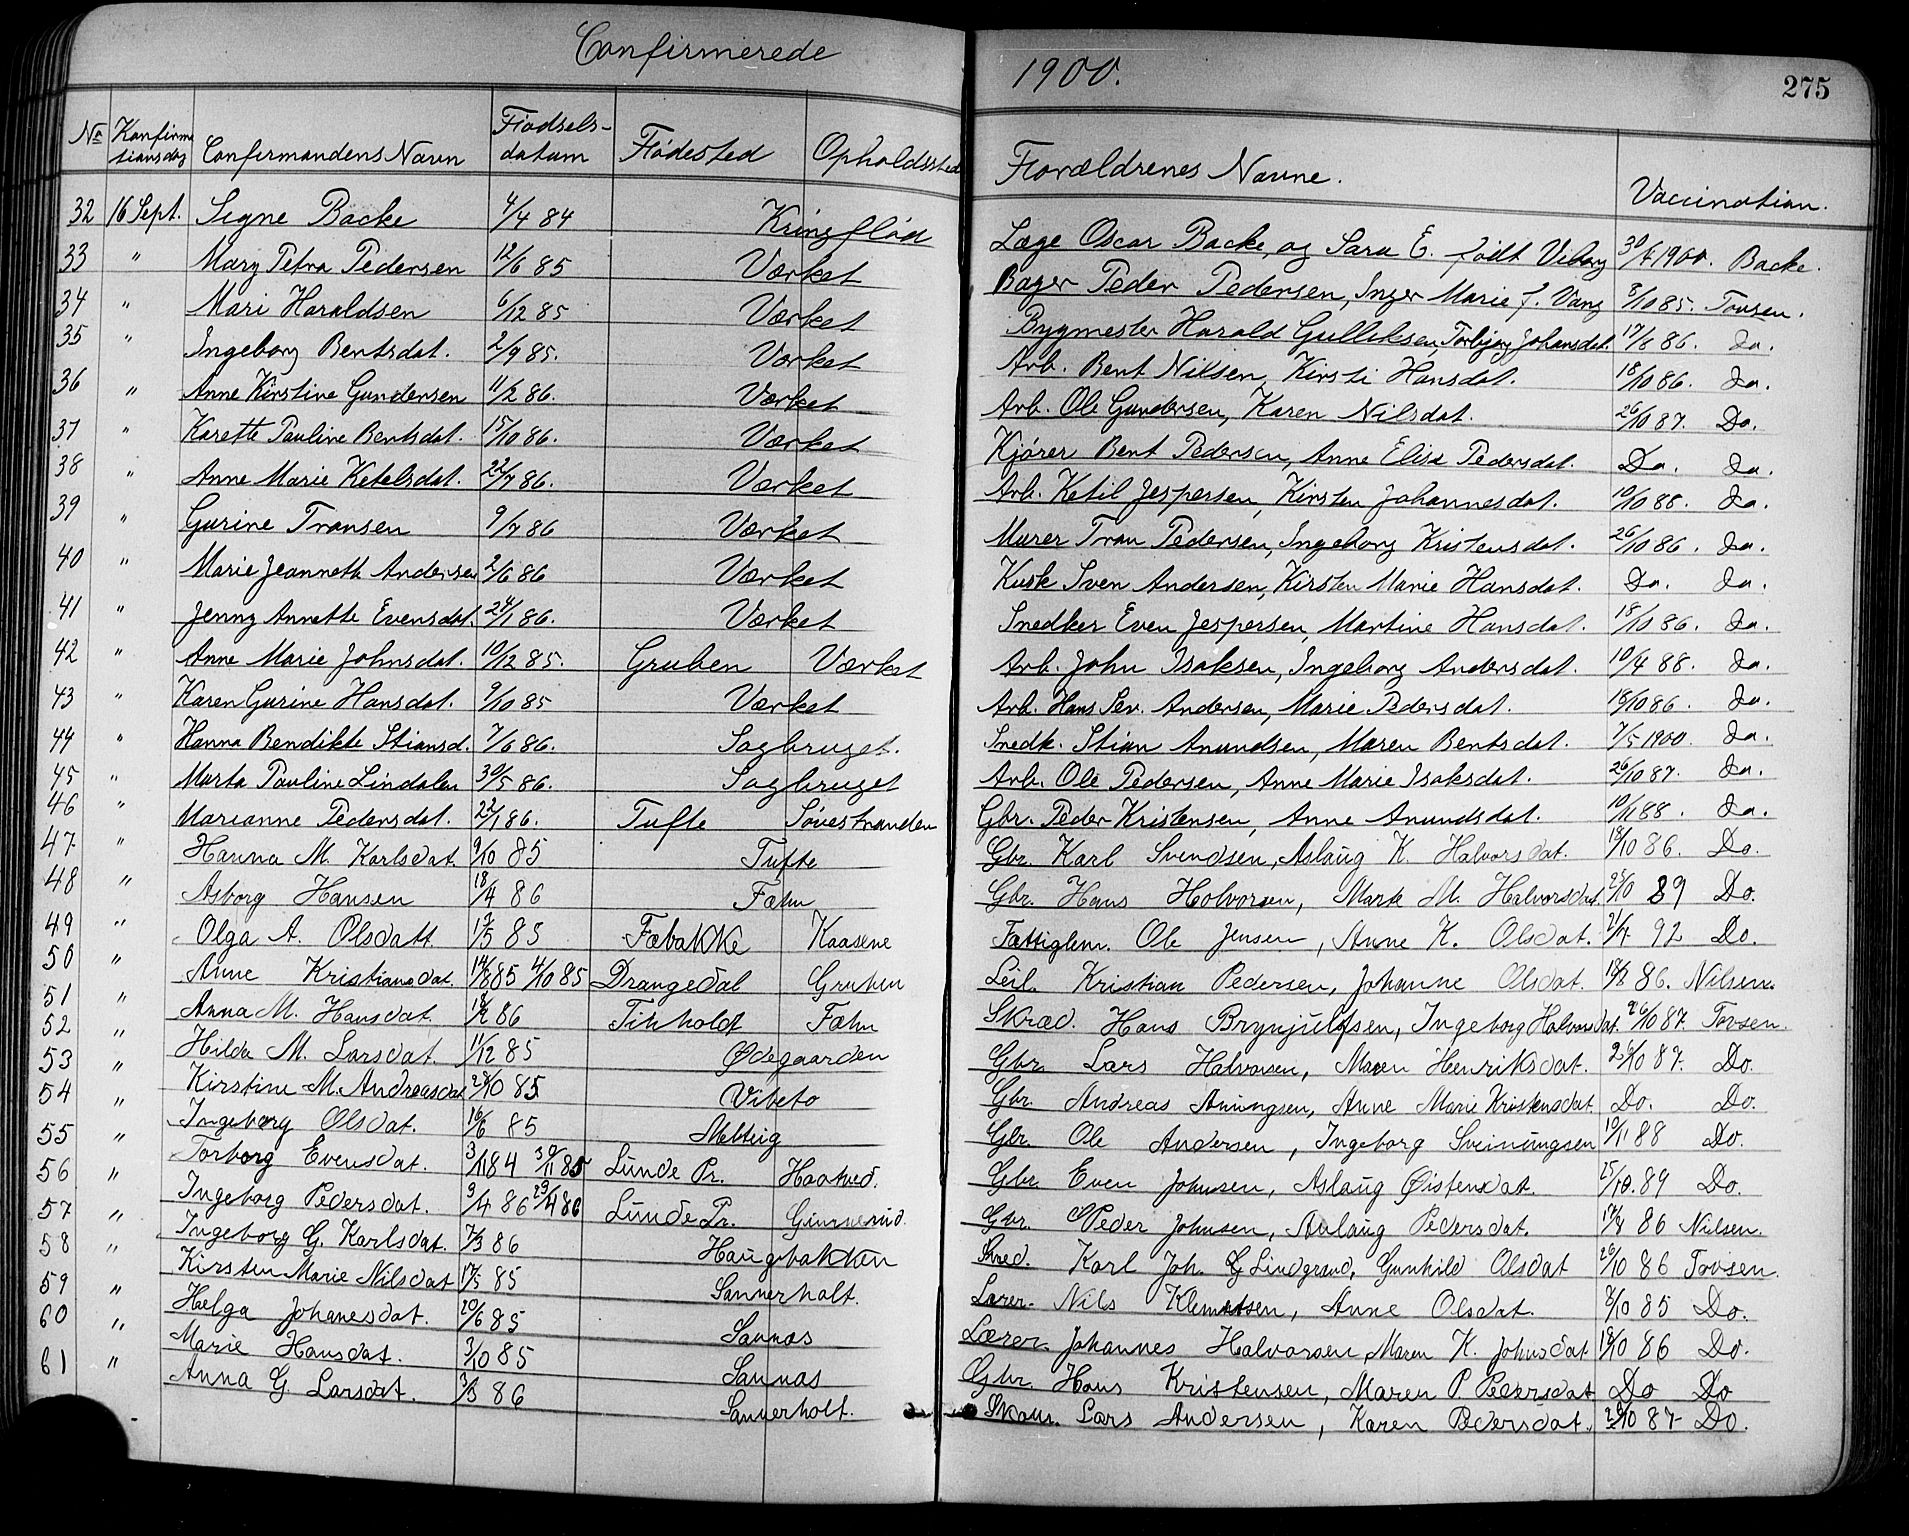 Confirmerede 1900. 275
No Konfirmationsdag Confirmandens Navn Fiødsels-datum Fiødested Opholdssted Foræeldrenes Navne. Vaccination.
32 16 Sept. Signe Backe 4/4 84 Kringfløia Læge Oscar Backe, og Sara E. født Viborg 30/4 1900. Backe.
33 " Mary Petra Pedersen 12/6 85 Værket Bager Peder Pedersen, Inger Marie f. Vang 8/10 85. Tovsen.
34 " Mari Haraldsen 6/12 85 Værket Bygmester Harald Gulliksen, Torbjørg Johansdat. 17/6 86. do.
35 " Ingeborg Bentsdat. 2/9 85. Værket Arb. Bent Nilsen, Kirsti Hansdat. 18/10 86. do.
36 " Anne Kirstine Gundersen 11/2 86. Værket Arb. Ole Gundersen, Karen Nilsdat. 26/10 87. Do.
37 " Karette Pauline Bentsdat. 15/10 86. Værket Kjører Bent Pedersen, Anne Elise Pedersdat. Do. do.
38 " Anne Marie Ketelsdat. 22/7 86. Værket Arb. Ketil Jespersen, Kirsten Johannesdat. 10/10 88. do.
39 " Gurine Transen 9/7 86 Værket Murer Tran Pedersen, Ingeborg Kristensdat. 26/10 86. do.
40 " Marie Jeanneth Andersen 2/6 86 Værket Kusk Sven Andersen, Kirsten Marie Hansdat. Do. do.
41 " Jenny Annette Evensdat. 24/1 86. Værket Snedker Even Jespersen, Martine Hansdat. 18/10 86. do.
42 " Anne Marie Johnsdat. 10/12 85. Gruben Værket Arb. John Isaksen, Ingeborg Andersdat. 10/4 88. do.
43 " Karen Gurine Hansdat. 9/10 85 Værket Arb. Hans Sev. Andersen, Marie Pedersdat. 18/10 86. do.
44 " Hanna Bendikte Stiansd. 7/6 86. Sagbruget. Snedk. Stian Anundsen, Maren Bentsdat. 7/5 1900. do.
45 " Marta Pauline Lindalen 30/5 86. Sagbruget Arb. Ole Pedersen, Anne Marie Isaksdat. 26/10 87. do.
46 " Marianne Pedersdat. 22/1 86. Tufte Søvestranden Gbr. Peder Kristensen, Anne Anundsdat. 10/11 88. do.
47. " Hanna M. Karlsdat. 9/10 85 Tufte Gbr. Karl Svendsen, Aslaug K. Halvorsdat. 18/10 86. Do.
48 " Asborg Hansen 18/4 86 Fæhn Gbr. Hans Holvorsen, Mart M. Halvorsdat. 25/10 89 Do.
49 " Olga A. Olsdatt 17/5 85 Fæbakke Kaasene Fattiglem. Ole Jensen, Anne K. Olsdat. 92 Do.
50 " Anne Kristiansdat. 14/8 85 4/10 85 Drangedal Gruben Leil. Kristian Pedersen, Johanne Olsdat. 86. Nilsen.
51 " Anna M. Hansdat. 86 Tihholdt Fæhn Skræd. Hans Brynjulfsen, Ingeborg Halvorsdat. 26/10 87. Tovsen.
52 " Hilda M. Larsdat. 11/12 85 Ødegaarden Gbr. Lars Halvorsen, Maren Henriksdat. 26/10 87. Do.
53 " Kirstine M. Andreasdat 28/10 85 Vibeto Gbr. Andreas Anungsen, Anne Marie Kristensdat Do. Do.
54 " Ingeborg Olsdat. 16/6 85 Melteig Gbr. Ole Andersen, Ingeborg Sveinungsen 10/11 88 Do.
55 " Torborg Evensdat. 3/11 84 30/11 85 Lunde Pr. Haatved. Gbr. Even Johnsen, Aslaug Øistensdat. 25/10. 89 Do.
56 " Ingeborg Pedersdat. 3/4 86 23/4 86 Lunde Pr. Gimserud. Gbr. Peder Johnsen, Aslaug Pedersdat. 86 Nilsen.
57 " Ingeborg G. Karlsdat. 7/3 86 Haugbakken Sned. Karl Joh. G Lindgrund, Gunhild Olsdat 26/10 86 Tovsen.
58 " Kirsten Marie Nilsdat 17/5 85 Sannerholt. Lærer. Nils Klemetsen, Anne Olsdat. 8/10 85 Do.
59 " Helga Johanesdat. 20/6 85 Sannas Lærer. Johannes Halvorsen, Maren K. Johnsdat 18/10 86 Do.
60 " Marie Hansdat. 3/10 85 Sannas Gbr. Hans Kristensen, Maren P Pedersdat Do Do
61 " Anna G Larsdat. 3/3 86 Sannerholt. Skom. Lars Andersen, Karen Pedersdat. 26/10 87 Do.